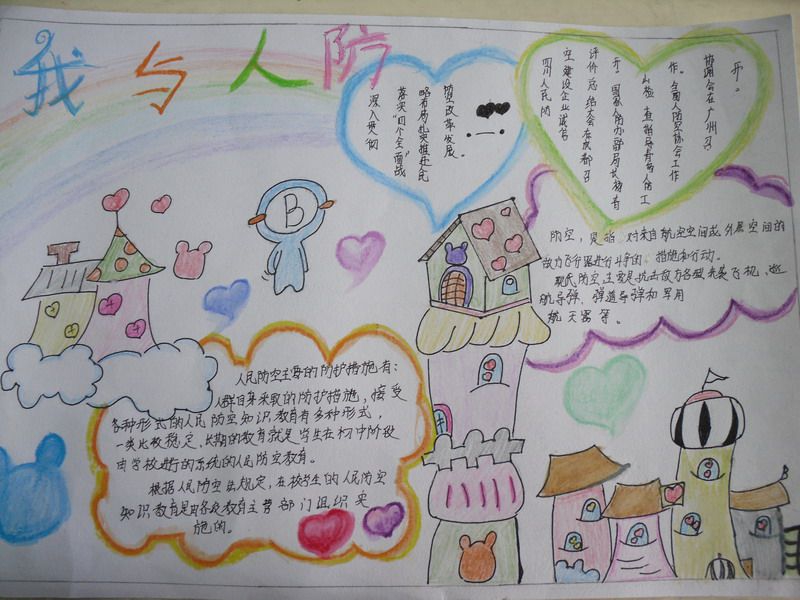 我与人防
深入贯彻
落实“四个全面”战
略布局扎实推进民
防空改革发展。
四川人民防
空建设企业诚信
评价总结大会在成都召
开。国家人防办副局长杨
山检查指导青岛人防工
作。全国人防空协会工作
协调会在广州召
开。
B
防空，是指对来自航空空间或外层空间的
敌方飞行器进行斗争的措施和行动。
现代防空主要是抗击敌方各种来袭飞机、巡
航导弹、弹道导弹和军用
航天器等。
人民防空主要的防护措施有：
人群目采取的防护措施，接受
各种形式的人民防空知识教育有多种形式，
一类比较稳定、长期的教育就是学生在初中阶段
由学校进行的系统的人民防空教育。
根据人民防空法规定，在校学生的人民防空
知识教育是由各级教育主管部门组织实
施的。